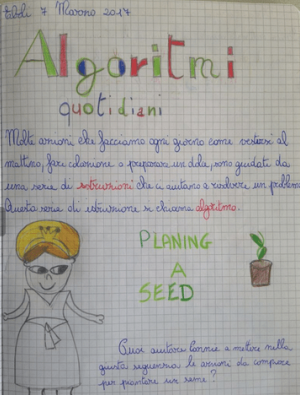 Eboli 7 Marzo 2017
Algoritmi
quotidiani
Molte azioni che facciamo ogni giorno come vestirsi al
mattino, fare colazione o preparare un dolce, sono guidate da
una serie di istruzioni che ci aiutano a risolvere un problema
Questa serie di istruzione si chiama algoritmo.
PLANING
A
SEED
Puoi aiutare Connie a mettere nella
giusta sequenza le azioni da compiere
per piantare un seme?